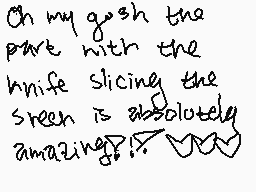 Oh my gosh the
part with the
knife slicing the
sreen is absolutely
amazing!?!? ♡♡♡